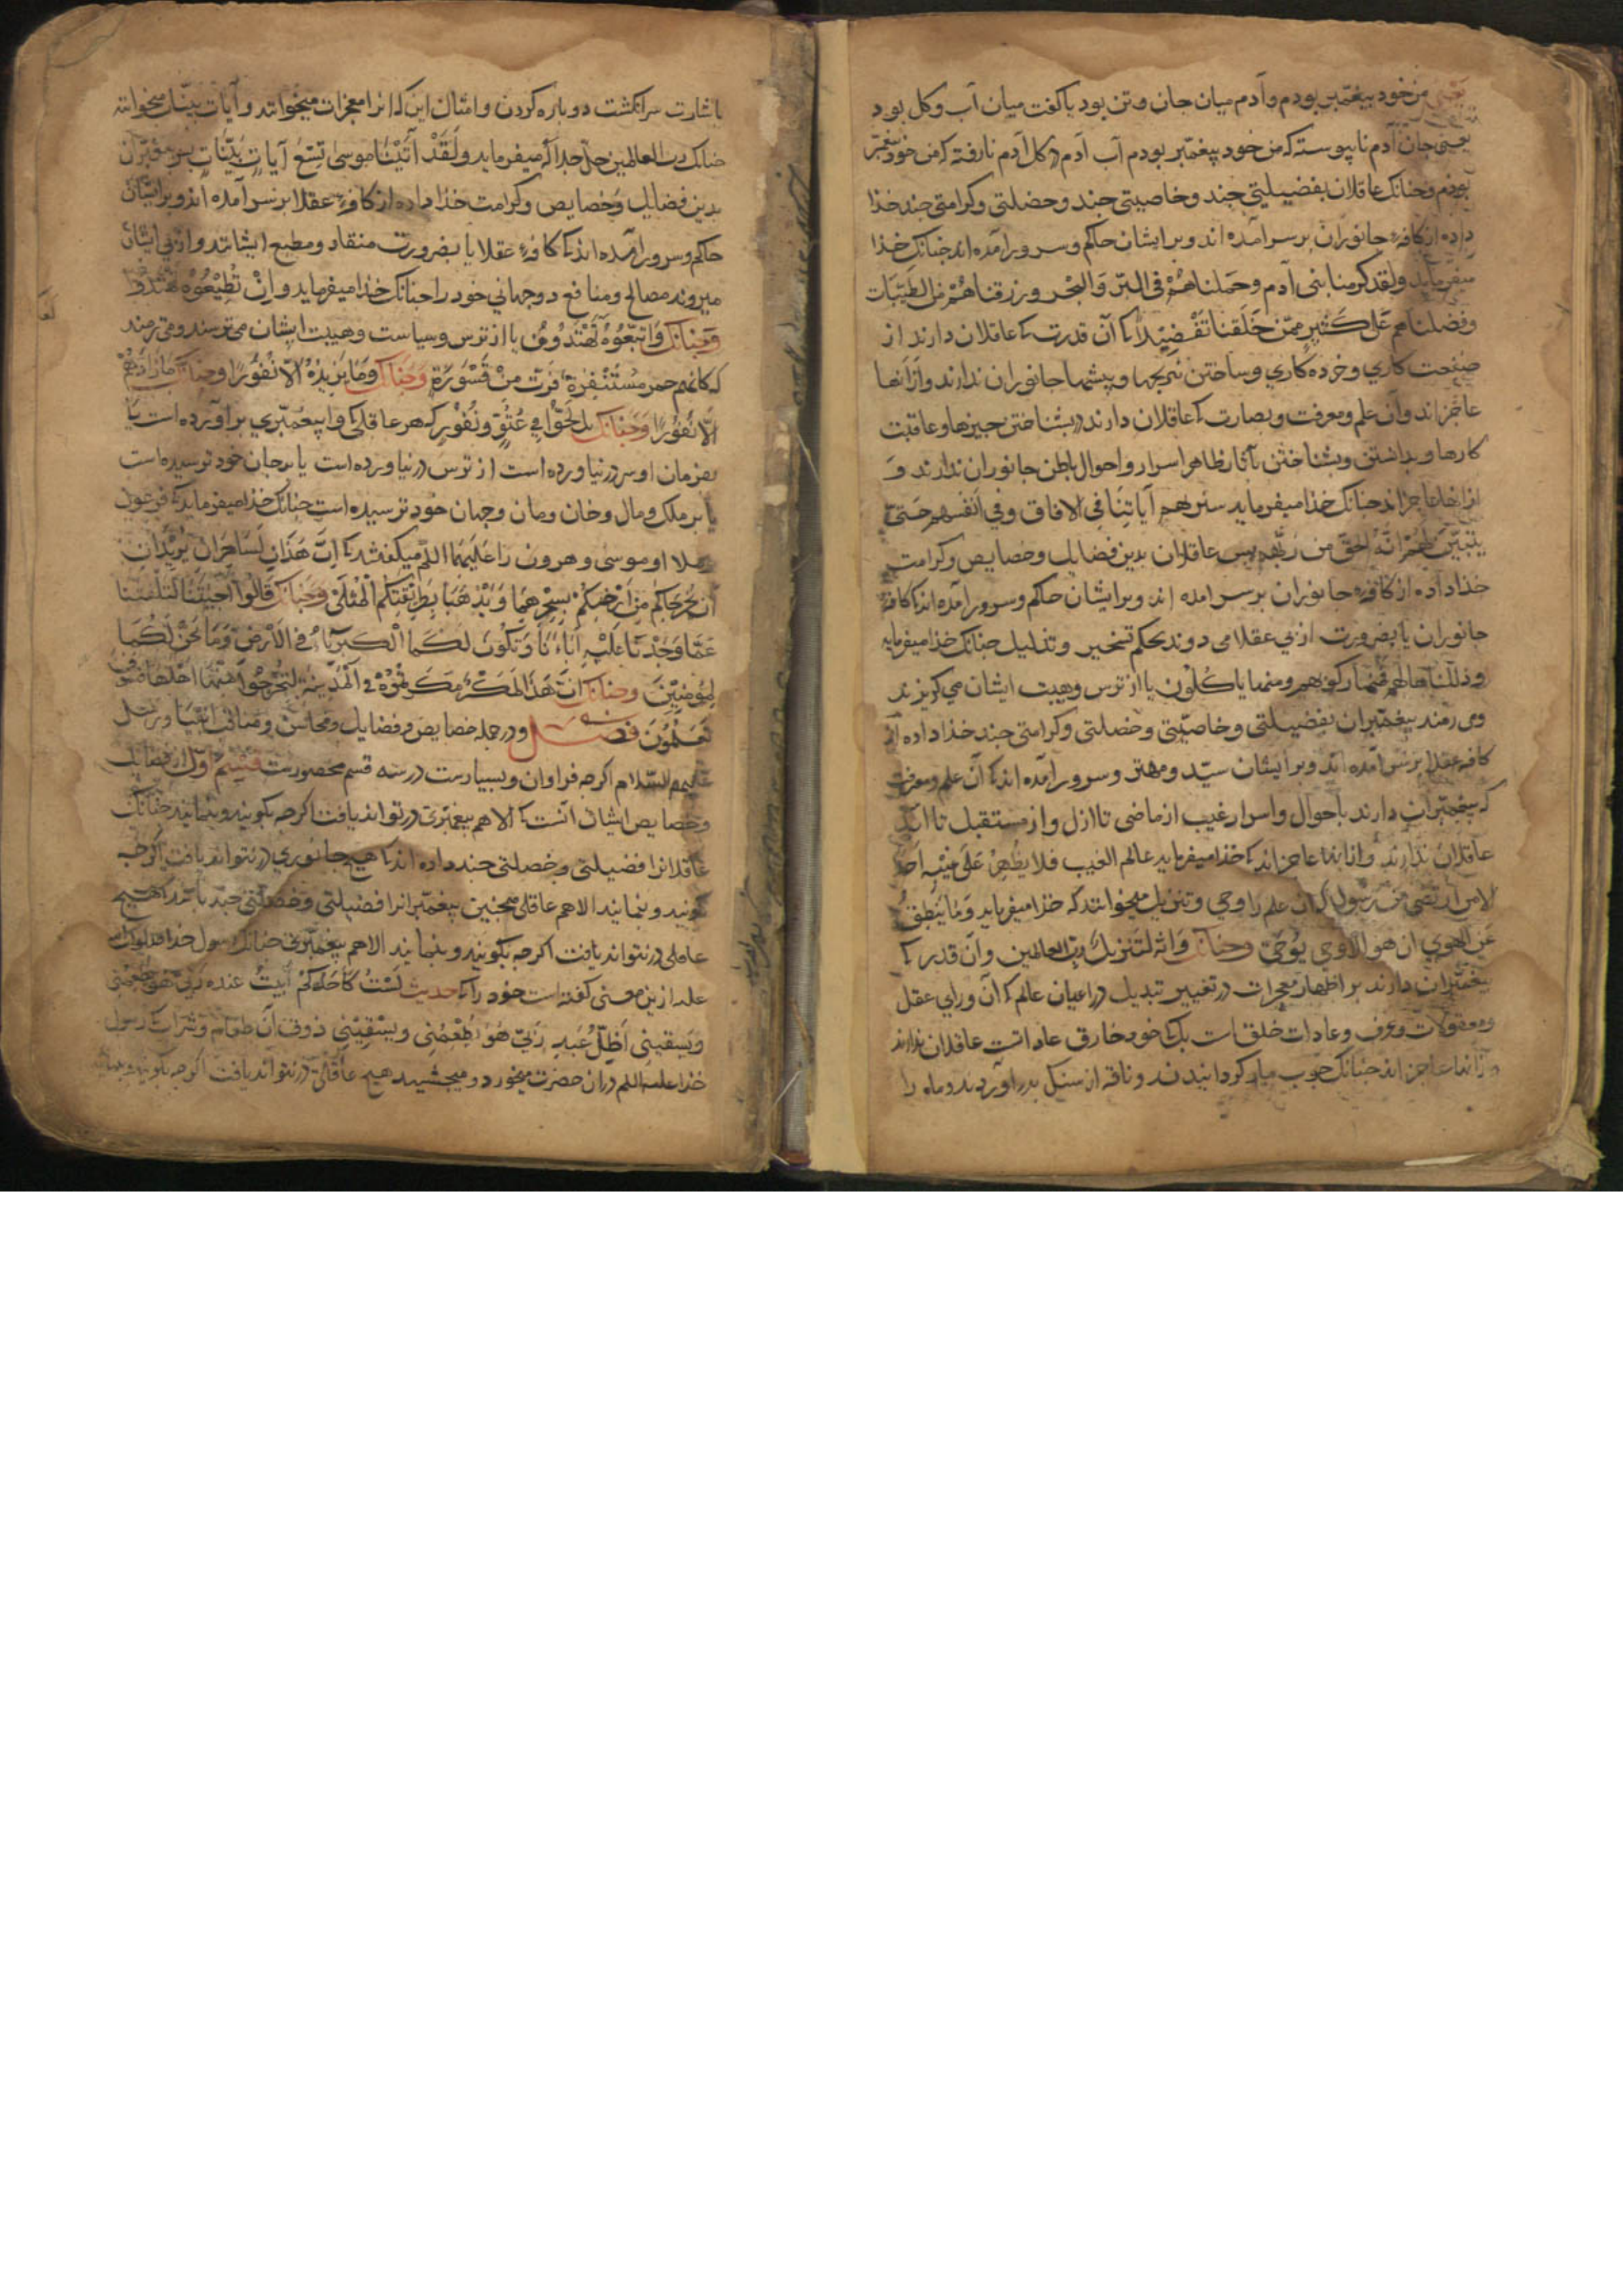 یعنی من خود پیغمبر بودم و آدم میان جان و تن بود یا گفت میان آب و کل بود
یعنی جان آدم ناپیوسته که من خود پیغمبر بودم آب آدم در کل آدم نارفته که من خود پیغمبر
بودم و چنانک عاقلان بفضیلتی چند و خاصیتی چند و خصلتی و کرامتی چند خذا
داده از کافهٔ جانوران بر سر آمده اند و بر ایشان حاکم و سرور آمده اند چنانک خذا
میفرماید ولقد کرمنا بنی آدم وحملناهُمْ فی البَرّ وَالبحْر ورزقناهُمْ من الطیّبات
وفضلناهم عَلی کَثیرٍ ممّن خَلَقنا تَفْضِیلًا کی آن قدرت کی عاقلان دارند از
صنعت کاری و خرده کاری و ساختن و پیشها جانوران ندارند و از آنها
عاجز اند و آن علم و معرفت و بصارت کی عاقلان دارند در بشناختن چیزها و عاقبت
کارها و بدانستن و بشناختن بآثار ظاهر اسرار و احوال باطن جانوران ندارند و
از آنها عاجز اند چنانک خذا میفرماید سنریهم آیاتِنا فی الافاق وفی انفسهم حَتیّ
یتبیّن لَهُمْ انّهُ الحَقّ من ربّهم پس عاقلان بدین فضایل و خصایص و کرامت
خذا داده از کافهٔ جانوران بر سر امده اند و بر ایشان حاکم و سرور آمده اند کی کافهٔ
جانوران یا بضرورت از پی عقلا می دوند بحکم تسخیر و تذلیل چنانک خذا میفرماید
وذللناها لهم فمنها رکوبهم ومنها یاکُلُون یا از ترس و هیبت ایشان می کریزند
و می رمند پیغمبران بفضیلتی و خاصیّتی و خصلتی و کرامتی چند خذا داده از
کافه عقلا بر سر آمده اند و بر ایشان سیّد و مهتر و سرور آمده اند کی آن علم و معرفت
که پیغمبران دارند باحوال و اسرار غیب از ماضی تا ازل و از مستقبل تا ابد
عاقلان ندارند و از آنها عاجز اند کی خذا میفرماید عالم الغیب فلا یُظهِرُ عَلی غیبهِ احدا
الا من ارتضی من رسول کی آن علم را وحی و تنزیل میخوانند که خذا میفرماید وَمَا ینطِقُ
عَنِ الهوی ان هو الا وحی یُوحَیٰ وچنانک وَانّه لتنزیلُ ربّ العالمین و آن قدرت کی
پیغمبران دارند بر اظهار معجزات در تغییر تبدیل در اعیان عالم کی آن ورای عقل
ومعقولات وعرف و عادات خلق است بلک خود خارق عادات عاقلان ندارند
و از آنها عاجز اند چنانک چوب مار کردانیدند و ناقه از سنک بدر اوردند و ماه را
باشارت سر انکشت دو پاره کردن و امثال این که انرا معجزات میخوانند و آیات بیّنات میخوانند
چنانک رب العالمین جلّ جلاله میفرماید ولَقَدْ آتَیْنَا موسَی تِسْعَ آیاتٍ بَیّنَاتٍ پس پیغمبران
بدین فضایل و خصایص و کرامت خذا داده از کافهٔ عقلا بر سر آمده اند و بر ایشان
حاکم و سرور آمده اند کی کافهٔ عقلا یا بضرورت منقاد و مطیع ایشانند و از پی ایشان
میروند مصالح و منافع دوجهانی خود را چنانک خذا میفرماید وانْ تُطیْعُوْهُ تَهْتَدُوْا
وچنانک وَاتبّعُوْهُ لَعَلّکم تَهْتَدُوْنَ یا از ترس و سیاست و هیبت ایشان می ترسند و می رمند
که کانهم حمر مُسْتَنْفِرَة فَرّت مِنْ قَسْوَرَةٍ وچنانک وَمَا یَزِیدُهُمْ الّا نُفُوْرًا وچنانک مَا زَادَهُمْ
الّا نُفُوْرًا وچنانک بل لَجّوْا فی عُتُوٍّ ونُفُوْرٍ که هر عاقلی کی وا پیغمبری بر آورده است یا
بفرمان او سر در نیاورده است از ترس در نیاورده است یا بر جان خود ترسیده است
یا بر ملک و مال و خان و مان و جهان خود ترسیده است چنانک خذا میفرماید کی فرعون
وملاء او موسی و هرون را علیهما السلم میکفتند کی اِنّ هَذَانِ لَسَاحِرَانِ یُرِیْدَانِ
اَنْ یُخْرِجَاکُمْ مِنْ اَرْضِکُمْ بِسِحْرِهِمَا وَیَذْهَبَا بِطَرِیْقَتِکُمُ الْمُثْلَی وچنانک قَالُوا اَجِئْتَنَا لِتَلْفِتَنَا
عَمّا وَجَدْنَا عَلَیْهِ آبَاءَنَا وَتَکُوْنَ لَکُمَا الْکِبْرِیَاءُ فی الاَرْضِ وَمَا نَحْنُ لَکُمَا
بِمُؤمِنِیْنَ وچنانک اِنّ هَذَا لَمَکْرٌ مَکَرْتُمُوْهُ فِی الْمَدِیْنَةِ لِتُخْرِجُوْا مِنْهَا اَهْلَهَا فَسَوْفَ
تَعْلَمُوْنَ فصل و در جمله خصایص و فضایل و محاسن و مناقب انبیا و رسل
علیهم السّلام اکرچه فراوان و بسیارست در سه قسم محصورست قسم اوّل از فضایل
و خصایص ایشان آنست کی الا هم پیغمبری در نتواند یافت اکرچه بکویند و بنمایند چنانک
عاقلانرا فضیلتی و خصلتی چند داده اند کی هیچ جانوری در نتواند یافت اکرچه
بکویند و بنمایند الا هم عاقلی همچنین پیغمبرانرا فضیلتی و خصلتی چند باشد کی هیچ
عاقلی در نتواند یافت اکرچه بکویند و بنمایند الا هم پیغمبری چنانک رسول خدا
علیه ازین معنی کفته است خود را کی حدیث لَسْتُ کَاَحَدِکُمْ اَبِیْتُ عند ربّی هو یُطْعِمُنِی
وَیَسقِینِی اَظَلّ عند رَبّی هُوَ یُطْعِمُنِی ویَسْقِیْنِی ذوق آن طعام و شراب کی رسول
خذا علیه السلم در ان حضرت میخورد و میچشید هیچ عاقلی در نتواند یافت اکرچه بکویند و بنمایند